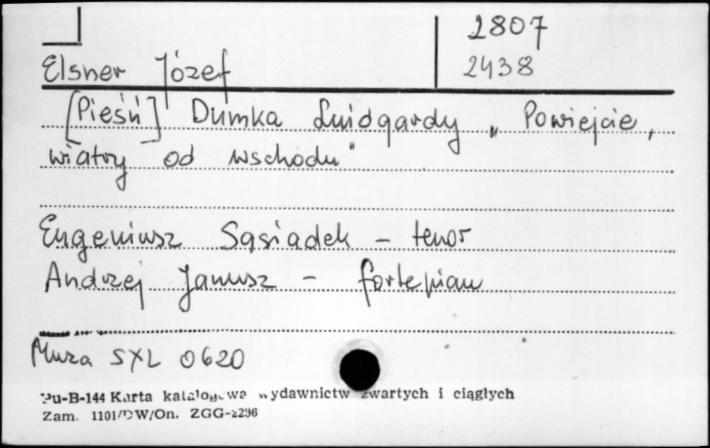 2807
Elsner Józef 2438
[Pieśń] Dumka Luidgardy „Powiejcie,
wiatry od wschodu"
Eugeniusz Sąsiadek – tenor
Andrzej Janusz – fortepian
Muza SXL 0620
Pu-B-144 Karta katalogowa wydawnictw zwartych i ciągłych
Zam. 1101/DW/On. ZGG-2296